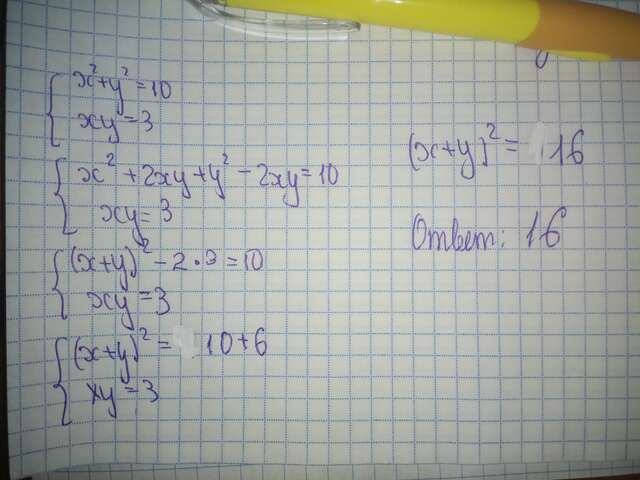 x² + y² = 10
xy = 3
x² + 2xy + y² - 2xy = 10
xy = 3
(x+y)² - 2·3 = 10
xy = 3
(x+y)² = 10+6
xy = 3
(x+y)² = 16
Ответ: 16